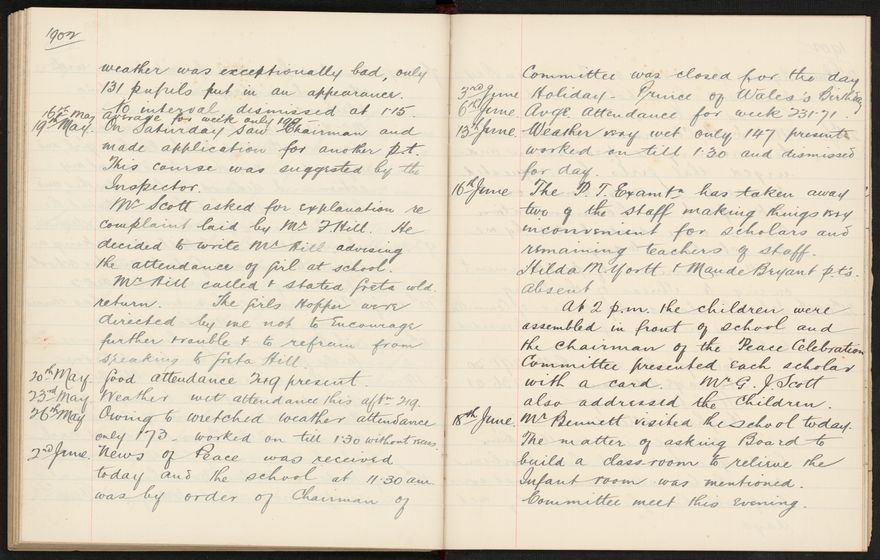 1902
weather was exceptionally bad, only
131 pupils put in an appearance.
No interval dismissed at 1.15.
16th May average for week only 197.
19th May. On Saturday saw Chairman and
made application for another p.t.
This course was suggested by the
Inspector.
Mr Scott asked for explanation re
complaint laid by Mr F Hill. He
decided to write Mr Hill advising
the attendance of girl at school.
Mr Hill called & stated Greta wld.
return. The girls Hopper were
directed by me not to encourage
further trouble & to refrain from
speaking to Greta Hill.
20th May. Good attendance 249 present.
23rd May. Weather wet attendance this aftn 219.
26th May Owing to wretched weather attendance
only 173 - worked on till 1.30 without recess.
2nd June. News of Peace was received
today and the school at 11.30 am
was by order of Chairman of
Committee was closed for the day
3rd June Holiday - Prince of Wales's Birthday
6th June. Avge. attendance for week 231.71.
13th June. Weather very wet only 147 present
worked on till 1.30 and dismissed
for day.
16th June The P. T. Examtn has taken away
two of the staff making things very
inconvenient for scholars and
remaining teachers of staff.
Hilda M. Yortt & Maude Bryant p.t's.
absent
At 2 p.m. the children were
assembled in front of school and
the Chairman of the Peace Celebration
Committee presented each scholar
with a card. Mr G. J. Scott
also addressed the children.
18th June. Mr Bennett visited the school today.
The matter of asking Board to
build a class-room to relieve the
Infant room was mentioned.
Committee meet this evening.